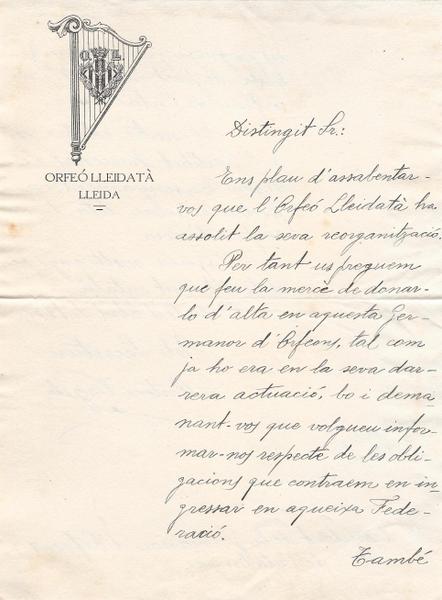 O L
ORFEÓ LLEIDATÀ
LLEIDA
Distingit Sr.:
Ens plau d'assabentar-
vos que l'Orfeó Lleidatà ha
assolit la seva reorganització.
Per tant us preguem
que feu la mercè de donar-
lo d'alta en aquesta Ger-
manor d'Orfeons, tal com
ja ho era en la seva dar-
rera actuació, bo i dema-
nant-vos que volgueu infor-
mar-nos respecte de les obli-
gacions que contraem en in-
gressar en aqueixa Fede-
ració.
També